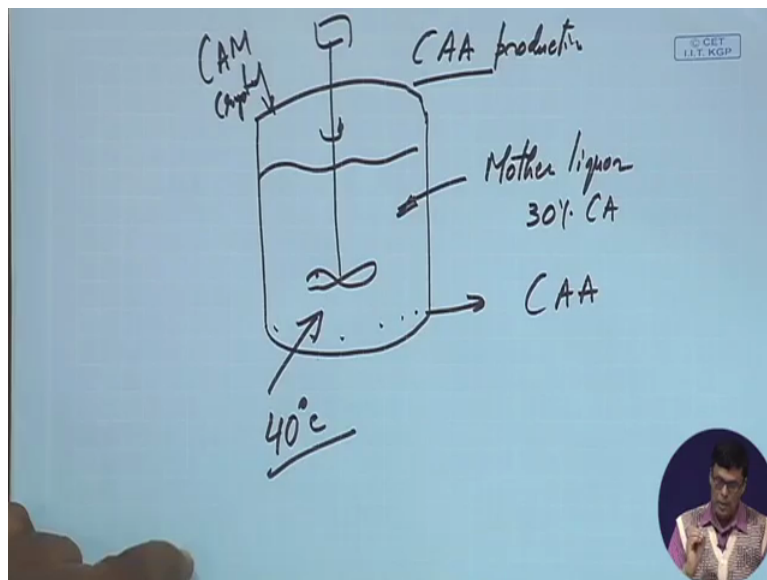 CAM
crystal
CAA production
© CET
I.I.T. KGP
Mother liquor
30% CA
CAA
40°C